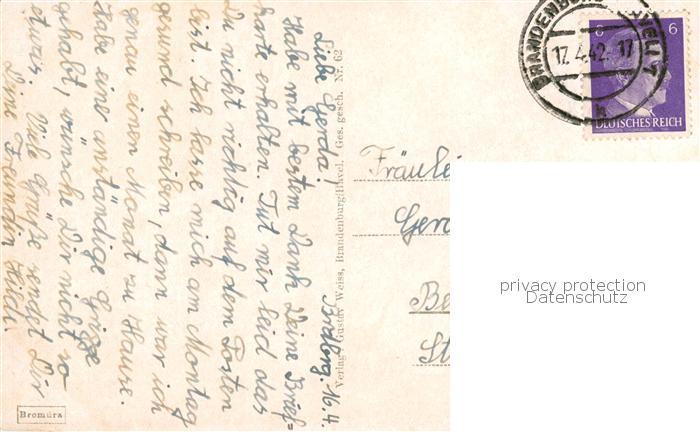 Brdbg. 16.4.
Liebe Gerda!
Habe mit bestem Dank Deine Brief=
karte erhalten. Tut mir leid das
Du nicht richtig auf dem Posten
bist. Ich lasse mich am Montag
gesund schreiben, dann war ich
genau einen Monat zu Hause.
Habe eine anständige Grippe
gehabt, wünsche Dir nicht so
etwas. Viele Grüße sendet Dir
Deine Freundin Hilde.
Verlag Gustav Weiss, Brandenburg(Havel. Ges. gesch. Nr. 62
Bromüra
BRANDENBURG (HAVEL) 1
17.4.42.17
h
6 6
DEUTSCHES REICH
Fräulei
Gerd
Be
St
privacy protection
Datenschutz